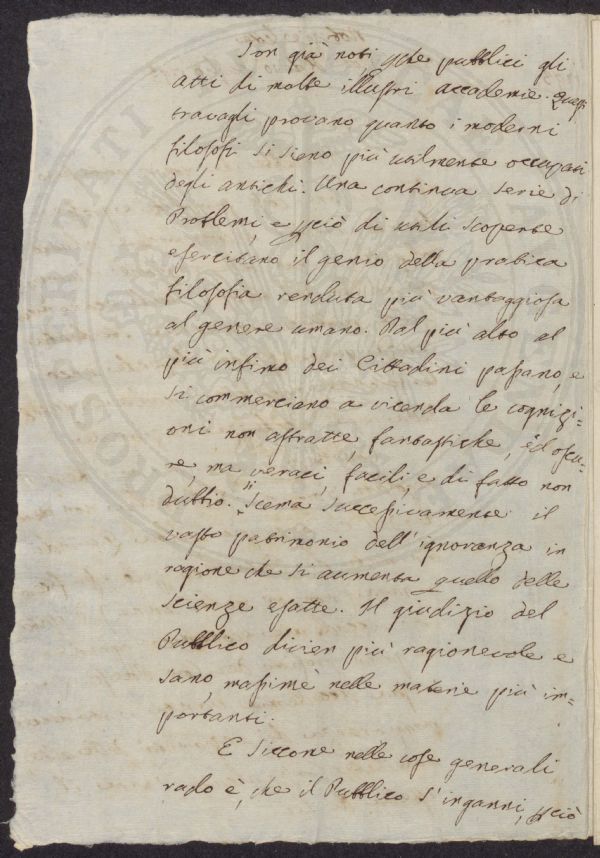 Son già noti, perchè pubblici gli
atti di molte illustri accademie. Questi
travagli provano quanto i moderni
filosofi si sieno più utilmente occupati
degli antichi. Una continua serie di
Problemi, e perciò di utili scoperte
esercitano il genio della pratica
filosofia renduta più vantaggiosa
al genere umano. Dal più alto al
più infimo dei Cittadini passano, e
si commerciano a vicenda le cognizi=
oni non astratte, fantastiche, ed oscu=
re, ma veraci, facili, e di fatto non
dubbio. Scema successivamente il
vasto patrimonio dell'ignoranza in
ragione che si aumenta quello delle
scienze esatte. Il giudizio del
Pubblico divien più ragionevole e
sano, massime nelle materie più im=
portanti.
E siccome nelle cose generali
rado è, che il Pubblico s'inganni, perciò